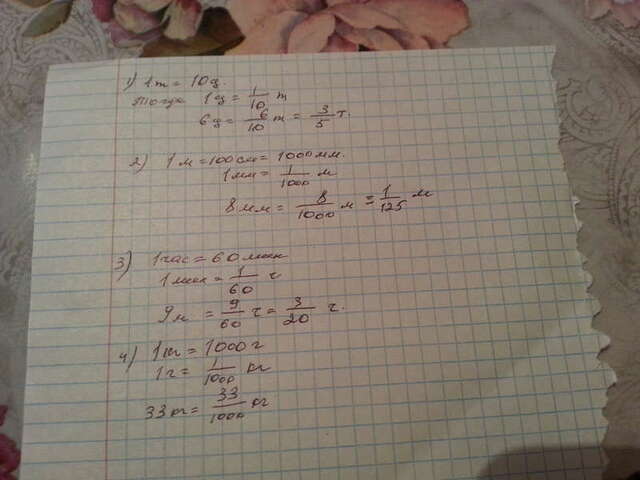 1) 1т = 10ц.
Тогда 1ц = 1/10 т
6ц = 6/10 т = 3/5 т.
2) 1м = 100см = 1000мм.
1мм = 1/1000 м
8мм = 8/1000 м = 1/125 м
3) 1час = 60мин
1мин = 1/60 ч
9м = 9/60 ч = 3/20 ч.
4) 1кг = 1000г
1г = 1/1000 кг
33кг = 33/1000 кг